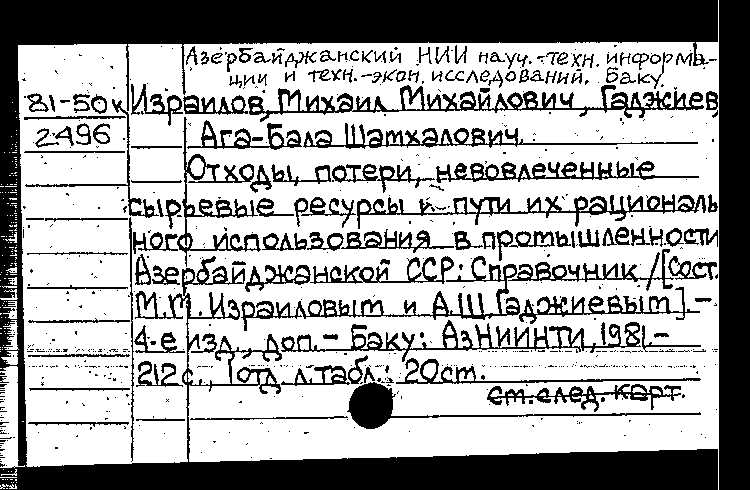 Азербайджанский НИИ науч.-техн. информа-
ции и техн.-экон. исследований. Баку
81-50к Израилов, Михаил Михайлович, Гаджиев
2496 Ага-Бала Шамхалович.
Отходы, потери, невовлеченные
сырьевые ресурсы и пути их рациональ
ного использования в промышленности
Азербайджанской ССР: Справочник /[Сост.
М.М. Израиловым и А.Ш. Гаджиевым].-
4-е изд., доп.- Баку: АзНИИНТИ, 1981.-
212 с., 1 отд. л. табл.; 20 см.
см. след. карт.